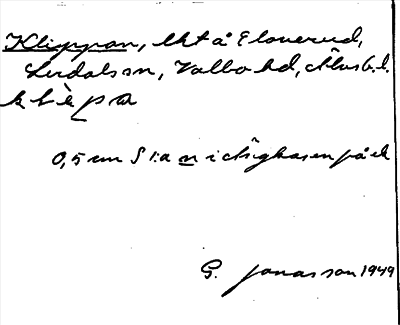 Klippan, lht å Eloverud,
Lerdals sn, Valbo hd, Älvsb. l.
klèpa
0,5 cm S l:a n i ekgbasen på ek
G. Jonasson 1949